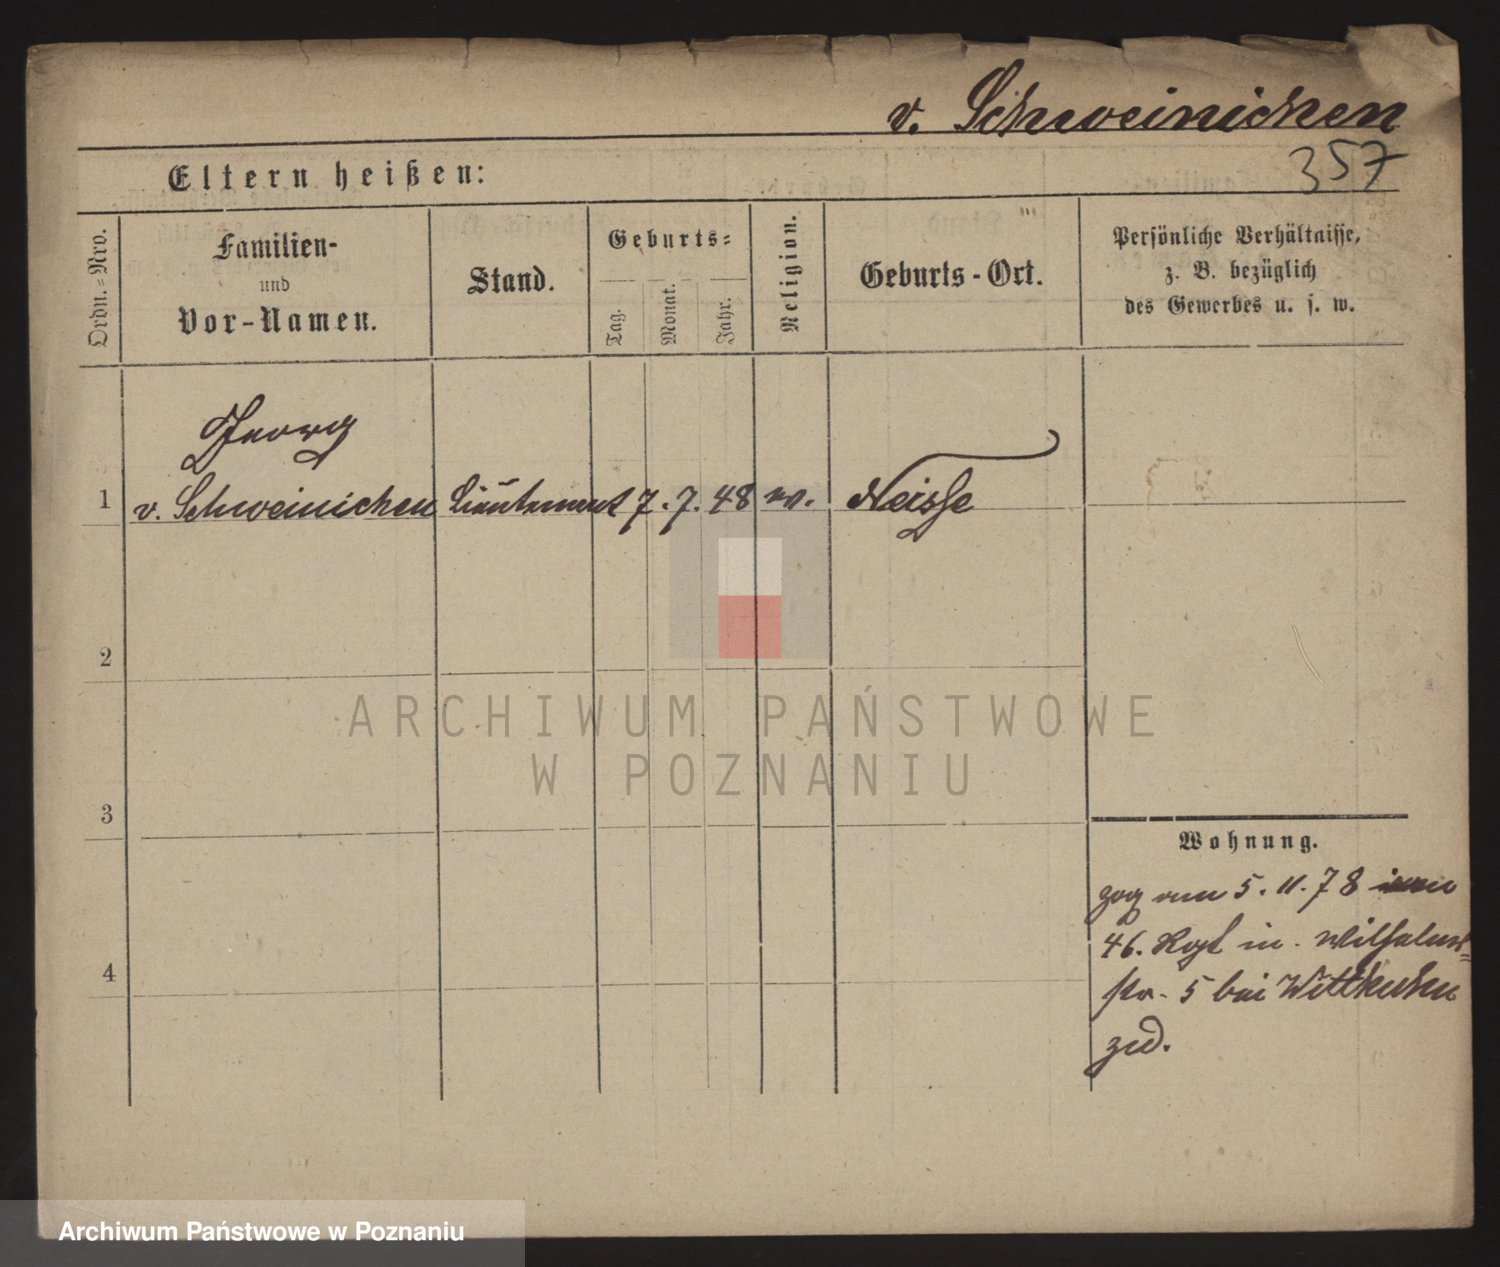 v. Schweinichen
357
Eltern heißen:
Ordn.-Nro.
Familien-
und
Vor-Namen.
Stand.
Geburts-
Tag.
Monat.
Jahr.
Religion.
Geburts-Ort.
Persönliche Verhältnisse,
z. B. bezüglich
des Gewerbes u. s. w.
Georg
1 v. Schweinichen Lieutenant 7. 7. 48 ev. Neisse
2
3
4
Wohnung.
zog am 5. 11. 78
46. Rgt in. Wilhelms-
str. 5 bei Wittkuhn
zu.
ARCHIWUM PAŃSTWOWE
W POZNANIU
Archiwum Państwowe w Poznaniu